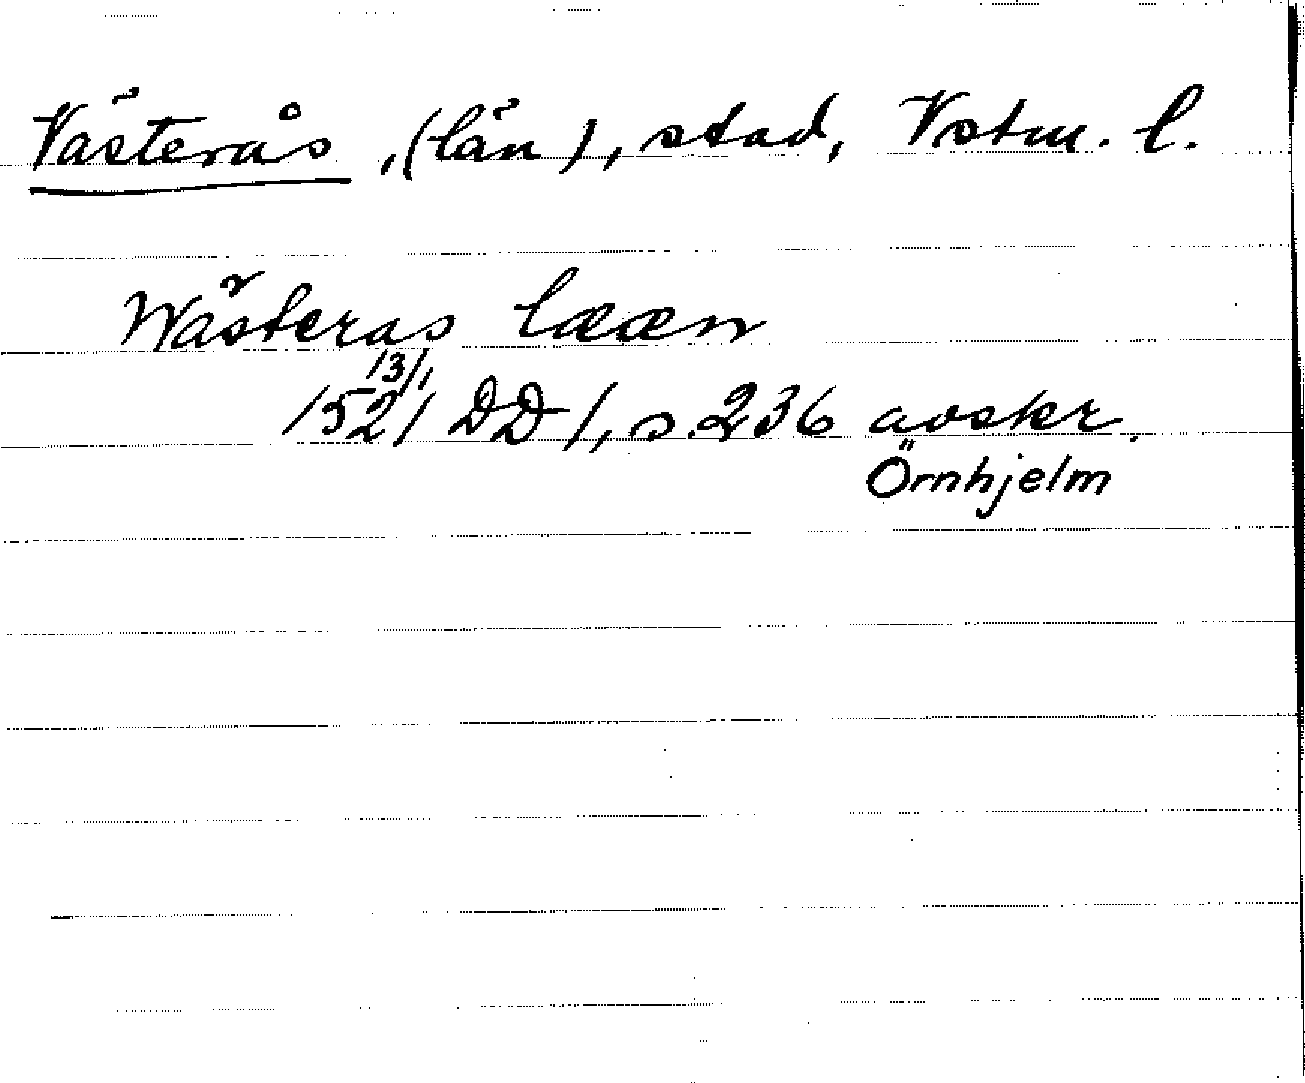 Västerås, (län), stad, Vstm. l.
Wästeras lææn
13/1
1521 DD 1, s. 236 avskr.
Örnhjelm